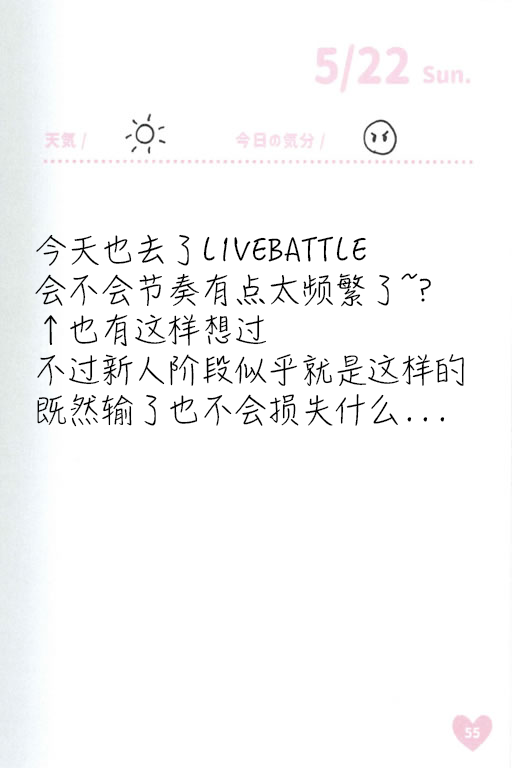 5/22 Sun.
天気/ 今日の気分/
今天也去了LIVEBATTLE
会不会节奏有点太频繁了~?
↑也有这样想过
不过新人阶段似乎就是这样的
既然输了也不会损失什么...
55